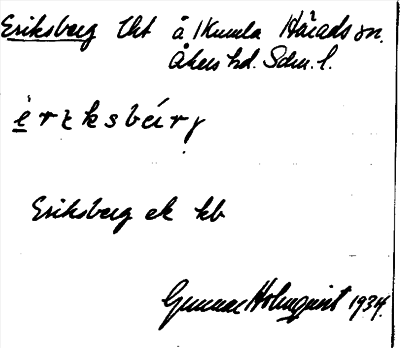 Eriksberg lht å Kumla Härads sn.
Åkers hd. Södm. l.
èrɩksbærj
Eriksberg ek kb
Gunnar Holmqvist 1934.